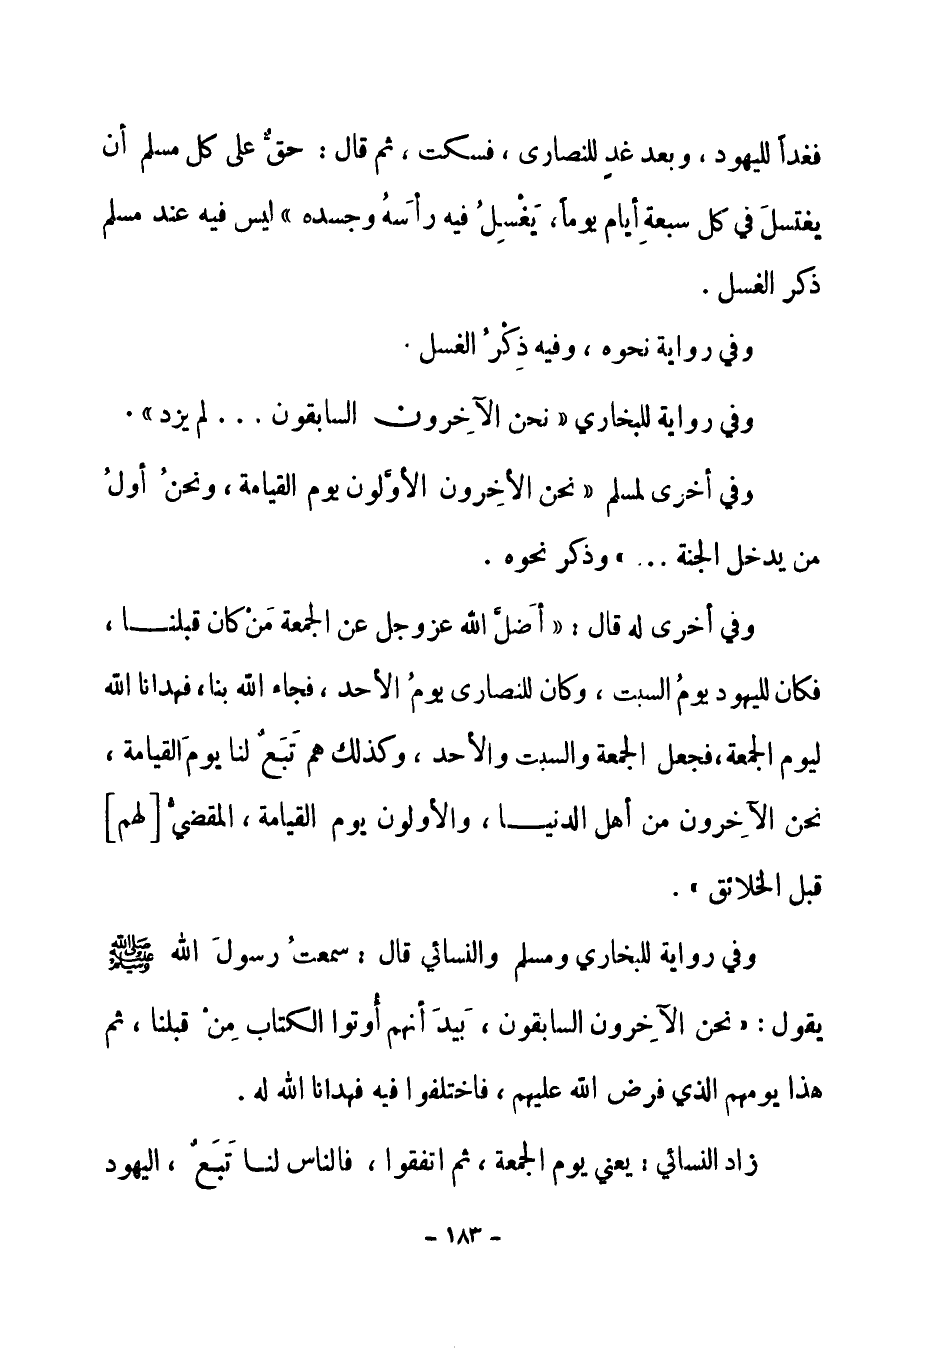 فغداً لليهود ، وبعد غدٍ للنصارى ، فسكت ، ثم قال : حقٌّ على كل مسلم أن
يغتسلَ في كل سبعةِ أيام يوماً، يَغْسِلُ فيه رأسَهُ وجسده » ليس فيه عند مسلم
ذكر الغسل .
وفي رواية نحوه ، وفيه ذِكْرُ الغسل .
وفي رواية للبخاري « نحن الآخِرون السابقون ... لم يزد » .
وفي أخرى لمسلم « نحن الأخِرون الأوَّلون يوم القيامة ، ونحنُ أولُ
من يدخل الجنة ... » وذكر نحوه .
وفي أخرى له قال : « أضلَّ الله عز وجل عن الجمعة مَنْ كان قبلنـــا ،
فكان لليهود يومُ السبت ، وكان للنصارى يومُ الأحد ، فجاء الله بنا، فهدانا الله
ليوم الجمعة،فجعل الجمعة والسبت والأحد ، وكذلك هم تَبَعٌ لنا يومَ القيامة ،
نحن الآخِرون من أهل الدنيـــا ، والأولون يوم القيامة ، المقضيُّ [لهم]
قبل الخلائق » .
وفي رواية للبخاري ومسلم والنسائي قال : سمعتُ رسولَ الله ﷺ
يقول : « نحن الآخِرون السابقون ، بَيدَ أنهم أُوتوا الكتاب مِنْ قبلنا ، ثم
هذا يومهم الذي فرض الله عليهم ، فاختلفوا فيه فهدانا الله له .
زاد النسائي : يعني يوم الجمعة ، ثم اتفقوا ، فالناس لنــا تَبَعٌ ، اليهود
- ١٨٣ -